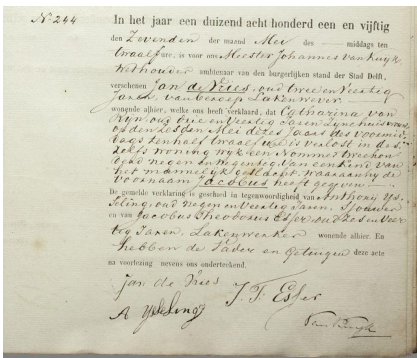 No. 244
In het jaar een duizend acht honderd een en vijftig
den Zevenden der maand Mei des middags ten
twaalf ure, is voor ons Meester Johannes van Kuyk
Wethouder ambtenaar van den burgerlijken stand der Stad Delft,
verschenen Jan de Vries, oud twee en Veertig
Jaren, van beroep Lakenwever,
wongende alhier, welke ons heeft verklaard, dat Catharina van
Ryn, oud drie en Veertig Jaren Zyne huisvrouw
op den Zesden Mei dezes Jaars des voormid-
dags ten half twaalf ure is verlost in des-
zelfs woning wyk een Nommer twee hon-
derd negen en negentig van een kind van
het mannelyk geslacht, waaraan hy de
voornaam Jacobus heeft gegeven
De gemelde verklaring is geschied in tegenwoordigheid van Anthony Ys-
seling, oud negen en Veertig Jaren, Sjouwer
en van Jacobus Theodosus Esser, oud zes en Veer-
tig Jaren, Lakenwerker wonende alhier. En
hebben de Vader en Getuigen deze acte
na voorlezing nevens ons onderteekend.
Jan de Vries J. T. Esser
A Ysseling
van Kuyk